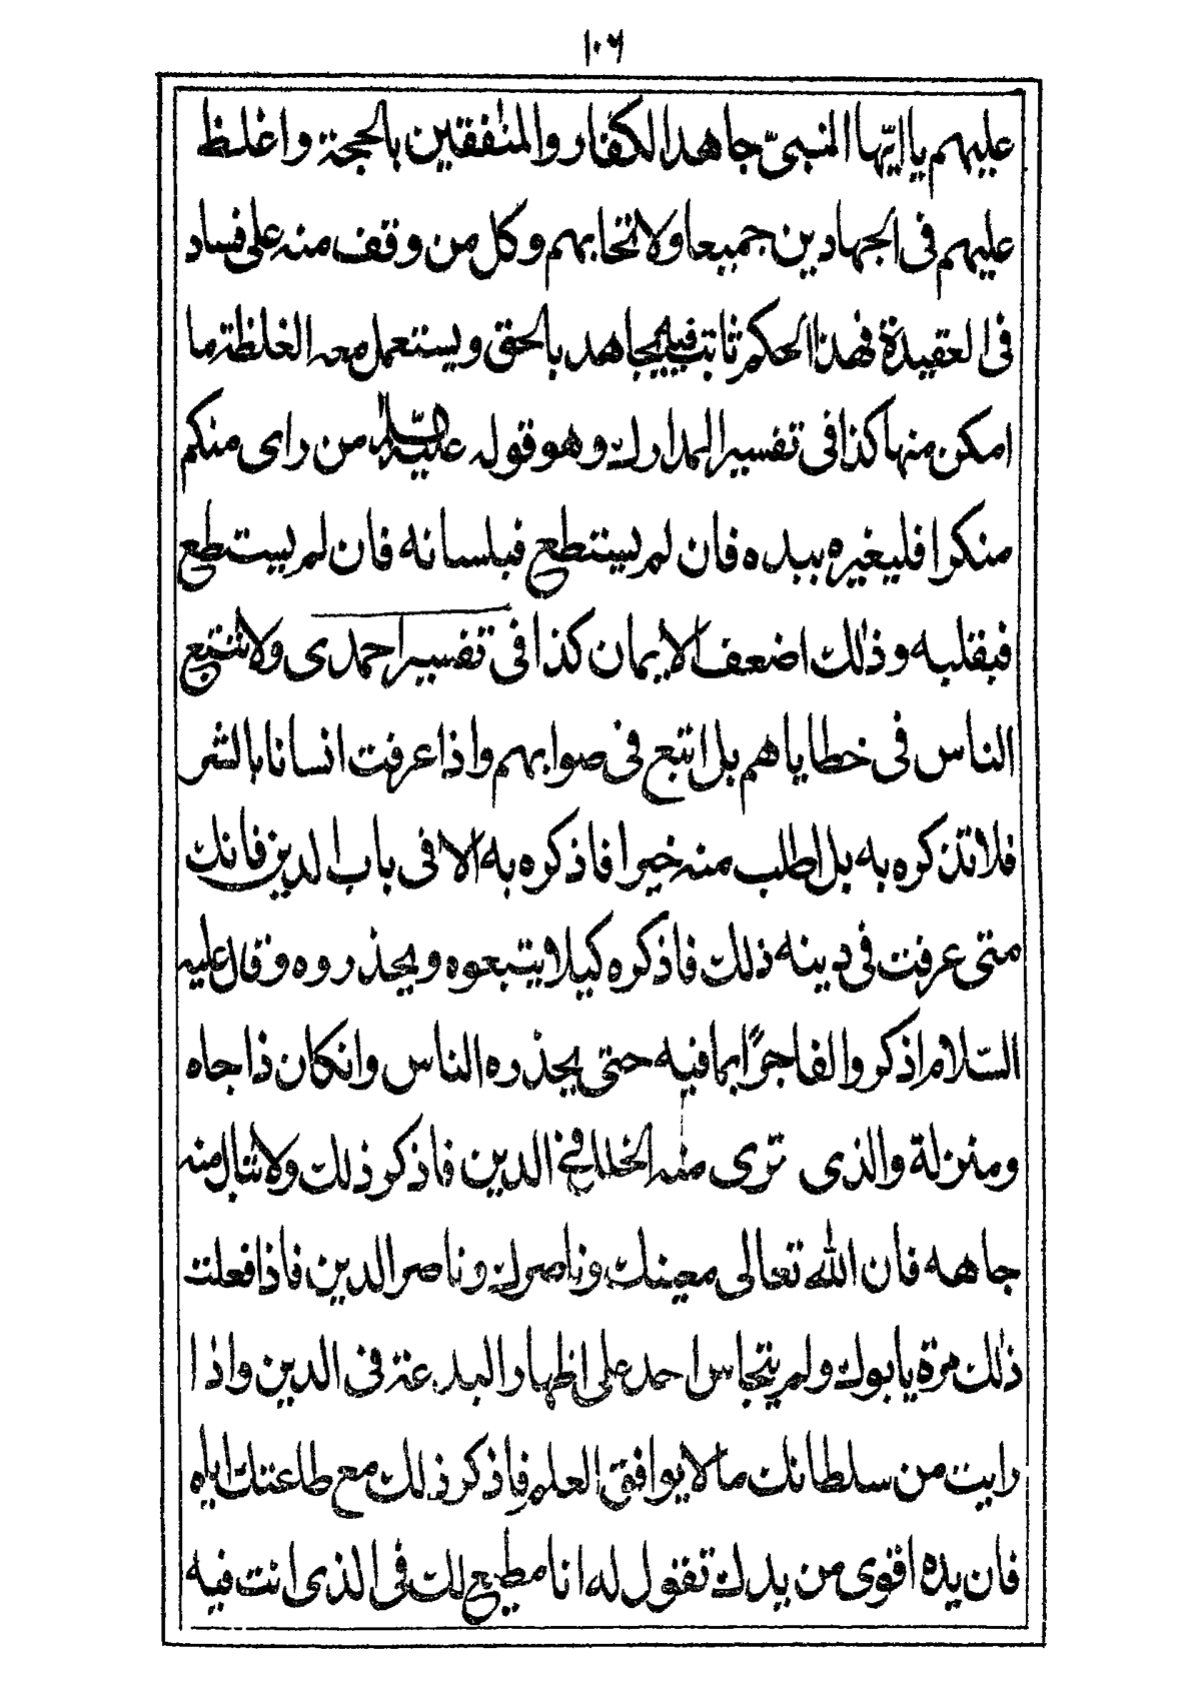 ١٠٦
عليهم يا ايّها النبىّ جاهد الكفار والمنٰفقين بالحجة واغلظ
عليهم فى الجهادين جميعا ولا تحابهم وكل من وقف منه على فساد
فى العقيدة فهذا الحكم ثابت فيه يجاهد بالحق ويستعمل معه الغلظة ما
امكن منها كذا فى تفسير المدارك وهو قوله عليه السّلام من راى منكم
منكرا فليغيره بيده فان لم يستطع فبلسانه فان لم يستطع
فبقلبه وذٰلك اضعف الايمان كذا فى تفسير احمدى ولا تتبع
الناس فى خطاياهم بل اتبع فى صوابهم واذا عرفت انسانا بالشر
فلا تذكره به بل اطلب منه خيرا فاذكره به الا فى باب الدين فانك
متى عرفت فى دينه ذلك فاذكره كيلا يتبعوه ويحذروه وقال عليه
السّلام اذكروا الفاجر بما فيه حتى يحذره الناس وانكان ذا جاه
ومنزلة والذى ترى منه الخلل فى الدين فاذكر ذلك ولا تبال منه
جاهه فان الله تعالى معينك وناصرك وناصر الدين فاذا فعلت
ذٰلك مرة يابوك ولم يتجاسر احد على اظهار البدعة فى الدين واذا
رايت من سلطانك ما لا يوافق العلم فاذكر ذلك مع طاعتك اياه
فان يده اقوى من يدك تقول له انا مطيع لك فى الذى انت فيه